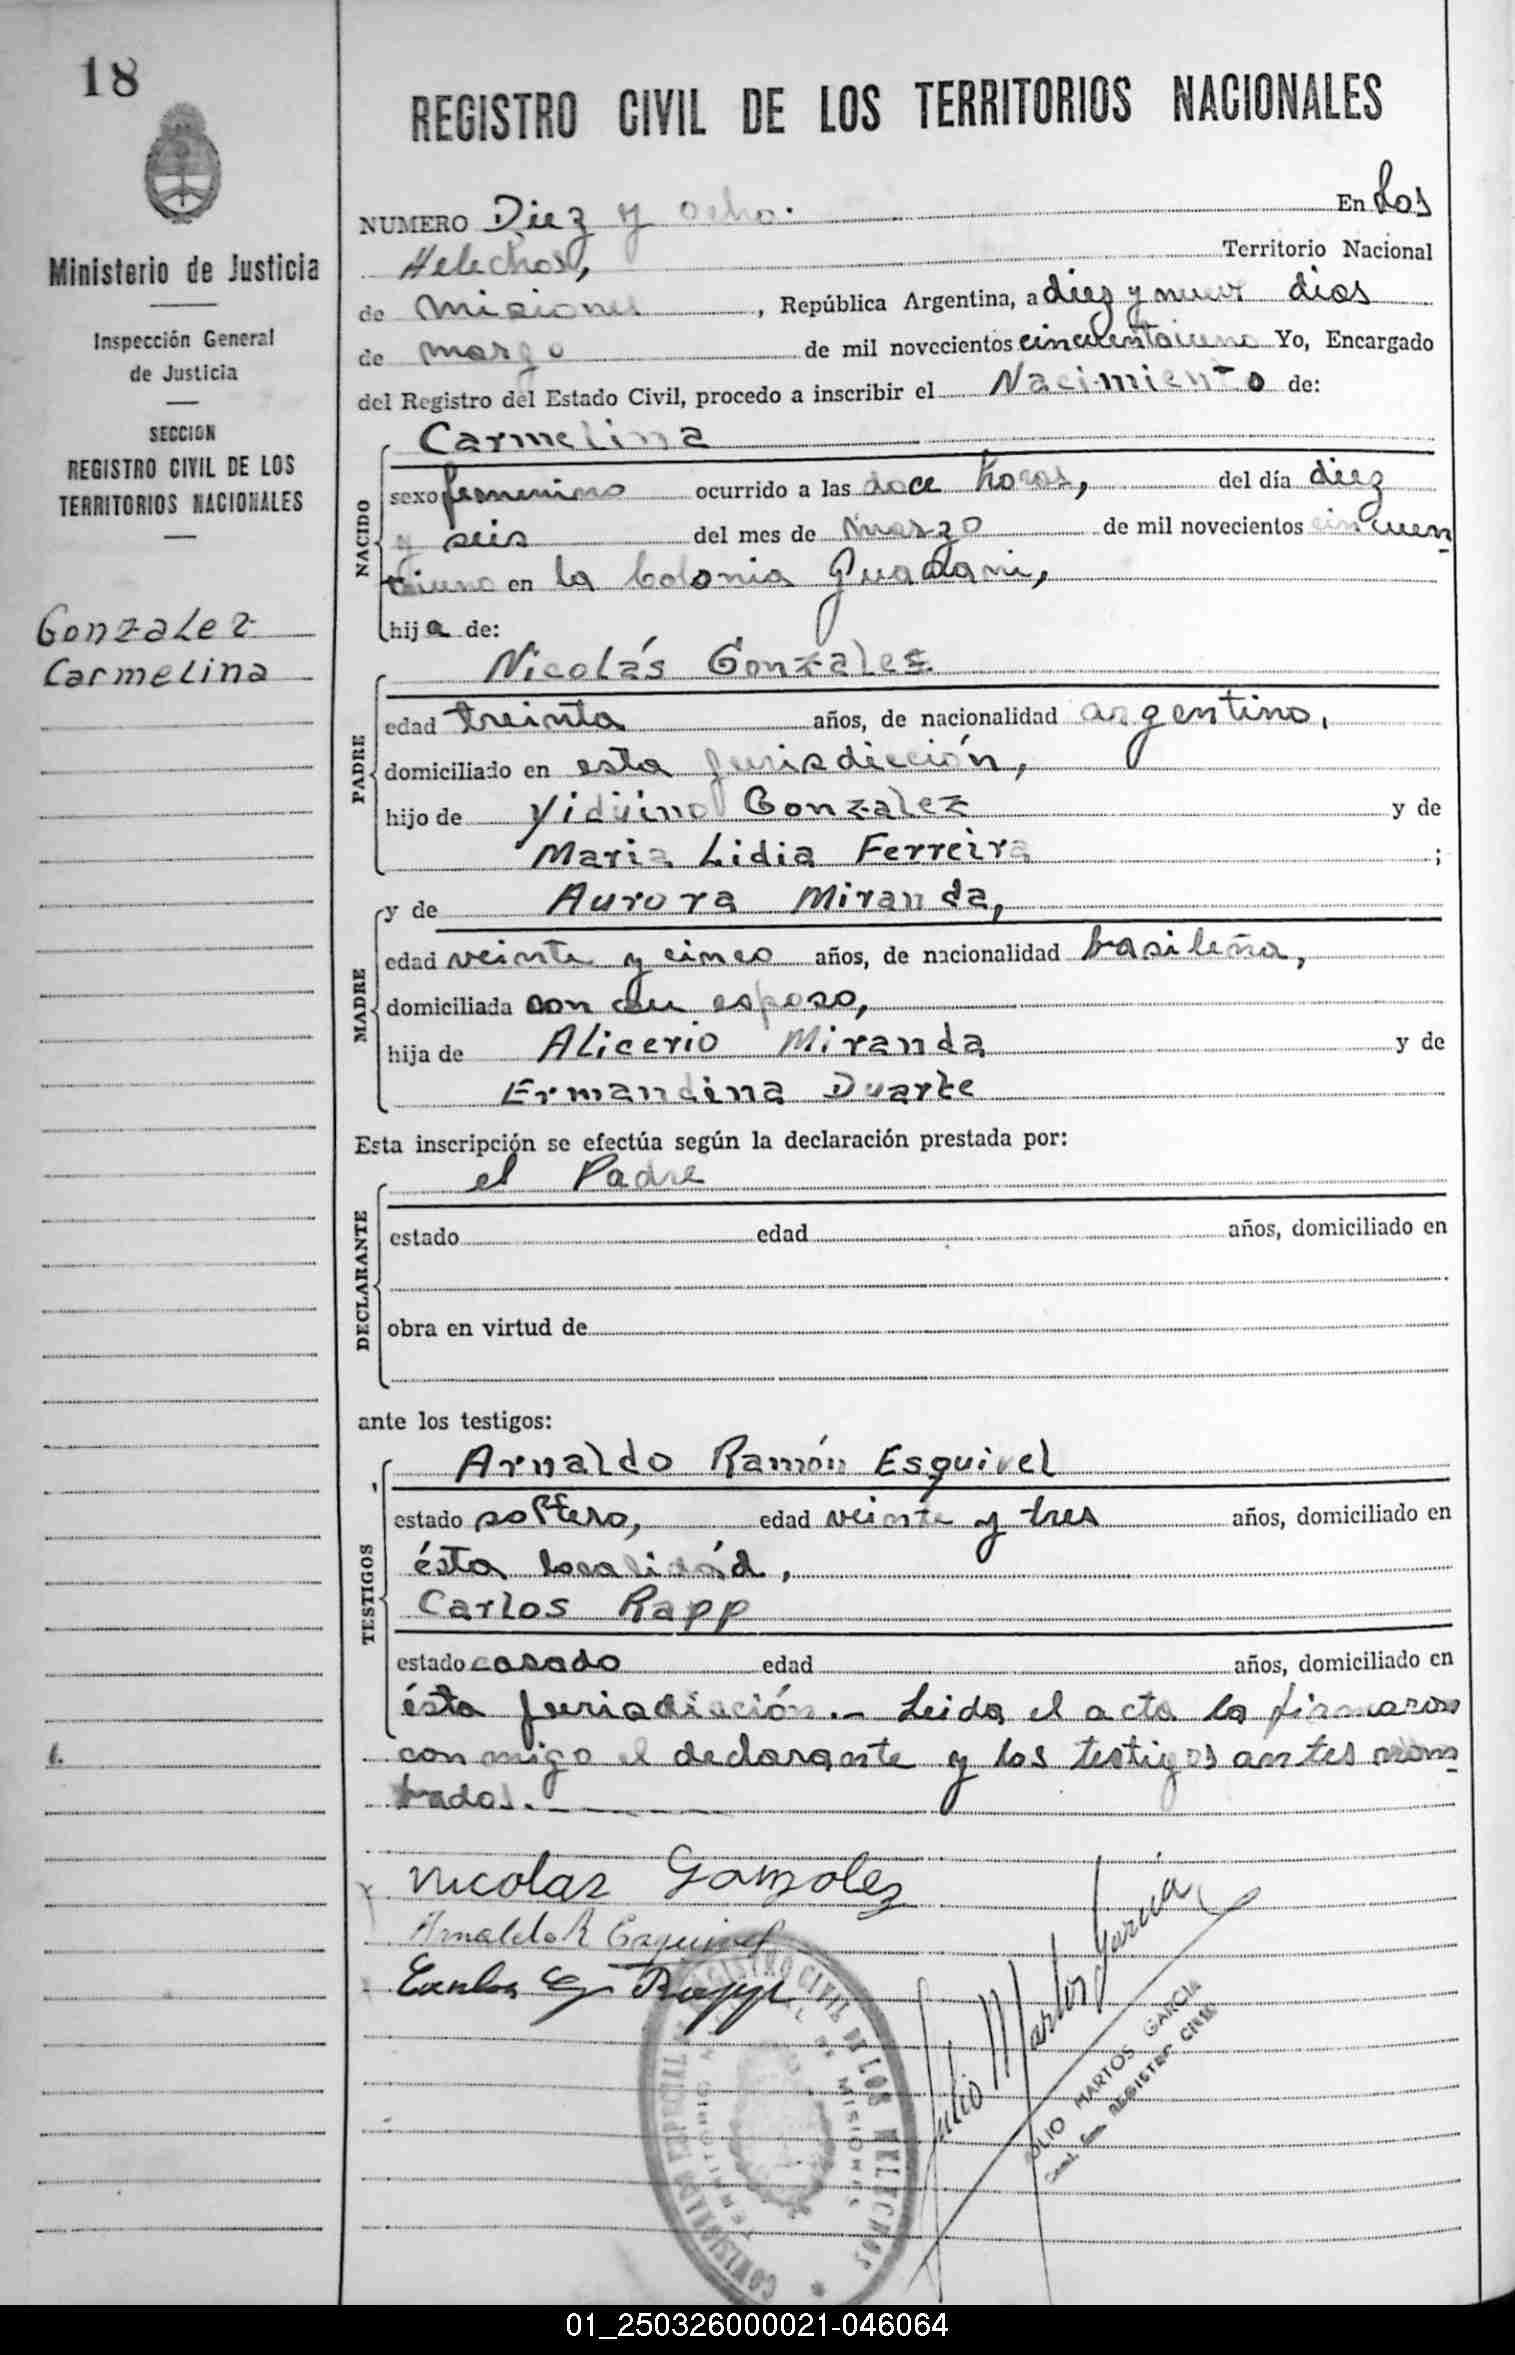 18
Ministerio de Justicia
Inspección General
de Justicia
SECCION
REGISTRO CIVIL DE LOS
TERRITORIOS NACIONALES
Gonzalez
Carmelina
REGISTRO CIVIL DE LOS TERRITORIOS NACIONALES
NUMERO Diez y ocho. En Los
Helechos, Territorio Nacional
de Misiones, República Argentina, a diez y nueve dias
de marzo de mil novecientos cincuentaiuno Yo, Encargado
del Registro del Estado Civil, procedo a inscribir el Nacimiento de:
Carmelina
NACIDO
sexo femenino ocurrido a las doce horas, del día diez
y seis del mes de marzo de mil novecientos cincuen
taiuno en la Colonia Guarani,
hija de:
Nicolás Gonzalez
PADRE
edad treinta años, de nacionalidad argentino,
domiciliado en esta jurisdicción,
hijo de Gonzalez y de
Maria Lidia Ferreira ;
y de Aurora Miranda,
MADRE
edad veinte y cinco años, de nacionalidad brasileña,
domiciliada con su esposo,
hija de Alicerio Miranda y de
Ermandina Duarte
Esta inscripción se efectúa según la declaración prestada por:
el Padre
DECLARANTE
estado edad años, domiciliado en
obra en virtud de
ante los testigos:
Arnaldo Ramón Esquivel
TESTIGOS
estado soltero, edad veinte y tres años, domiciliado en
ésta localidád,
Carlos Rapp
estado casado edad años, domiciliado en
ésta jurisdicción.- Leida el acta la firmaron
conmigo el declarante y los testigos antes nom
brados.
Nicolas Gonzalez
Arnaldo R Esquivel
Carlos Rapp
Julio Martos Garcia
JULIO MARTOS GARCIA
REGISTRO CIVIL
REGISTRO CIVIL DE LOS HELECHOS
TERRITORIO DE MISIONES
01_250326000021-046064